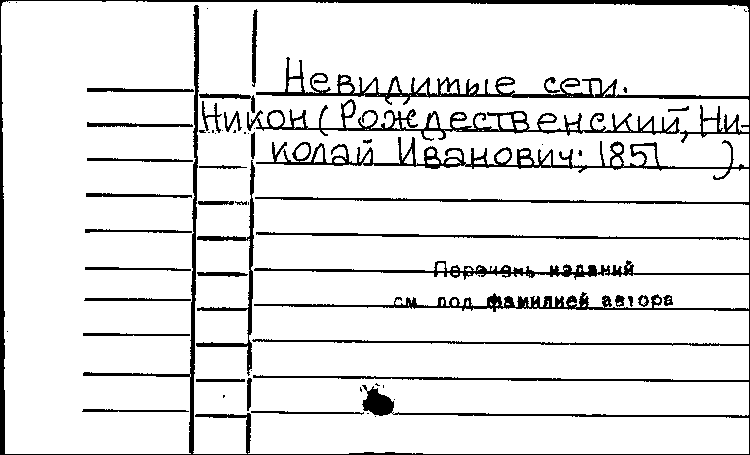 Невидимые сети.
Никон (Рождественский, Ни-
колай Иванович; 1851 ).
Перечень изданий
см. под фамилией автора